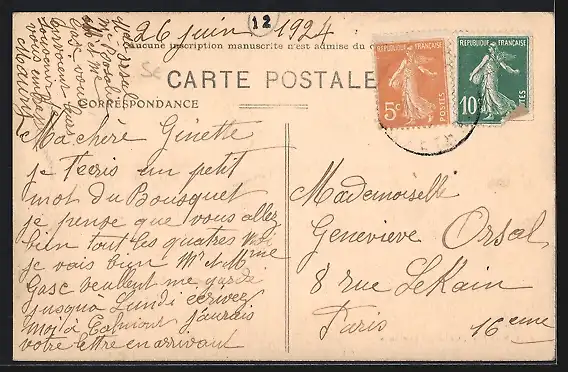 26 juin 1924
12
Aucune inscription manuscrite n'est admise du
CARTE POSTALE
CORRESPONDANCE
RÉPUBLIQUE FRANÇAISE
5c
POSTES
RÉPUBLIQUE FRANÇAISE
10c
POSTES
Ma chère Ginette
je t'ecris un petit
mot du Bousquet
je pense que vous allez
bien tout les quatres moi
je vais bien Mr et Mme
Gasc veullent me garde
jusquà Lundi ecrivez
moi à j'aurais
votre lettre en arrivant
Mademoiselle
Genevieve Orsal
8 rue LeKain
Paris 16eme